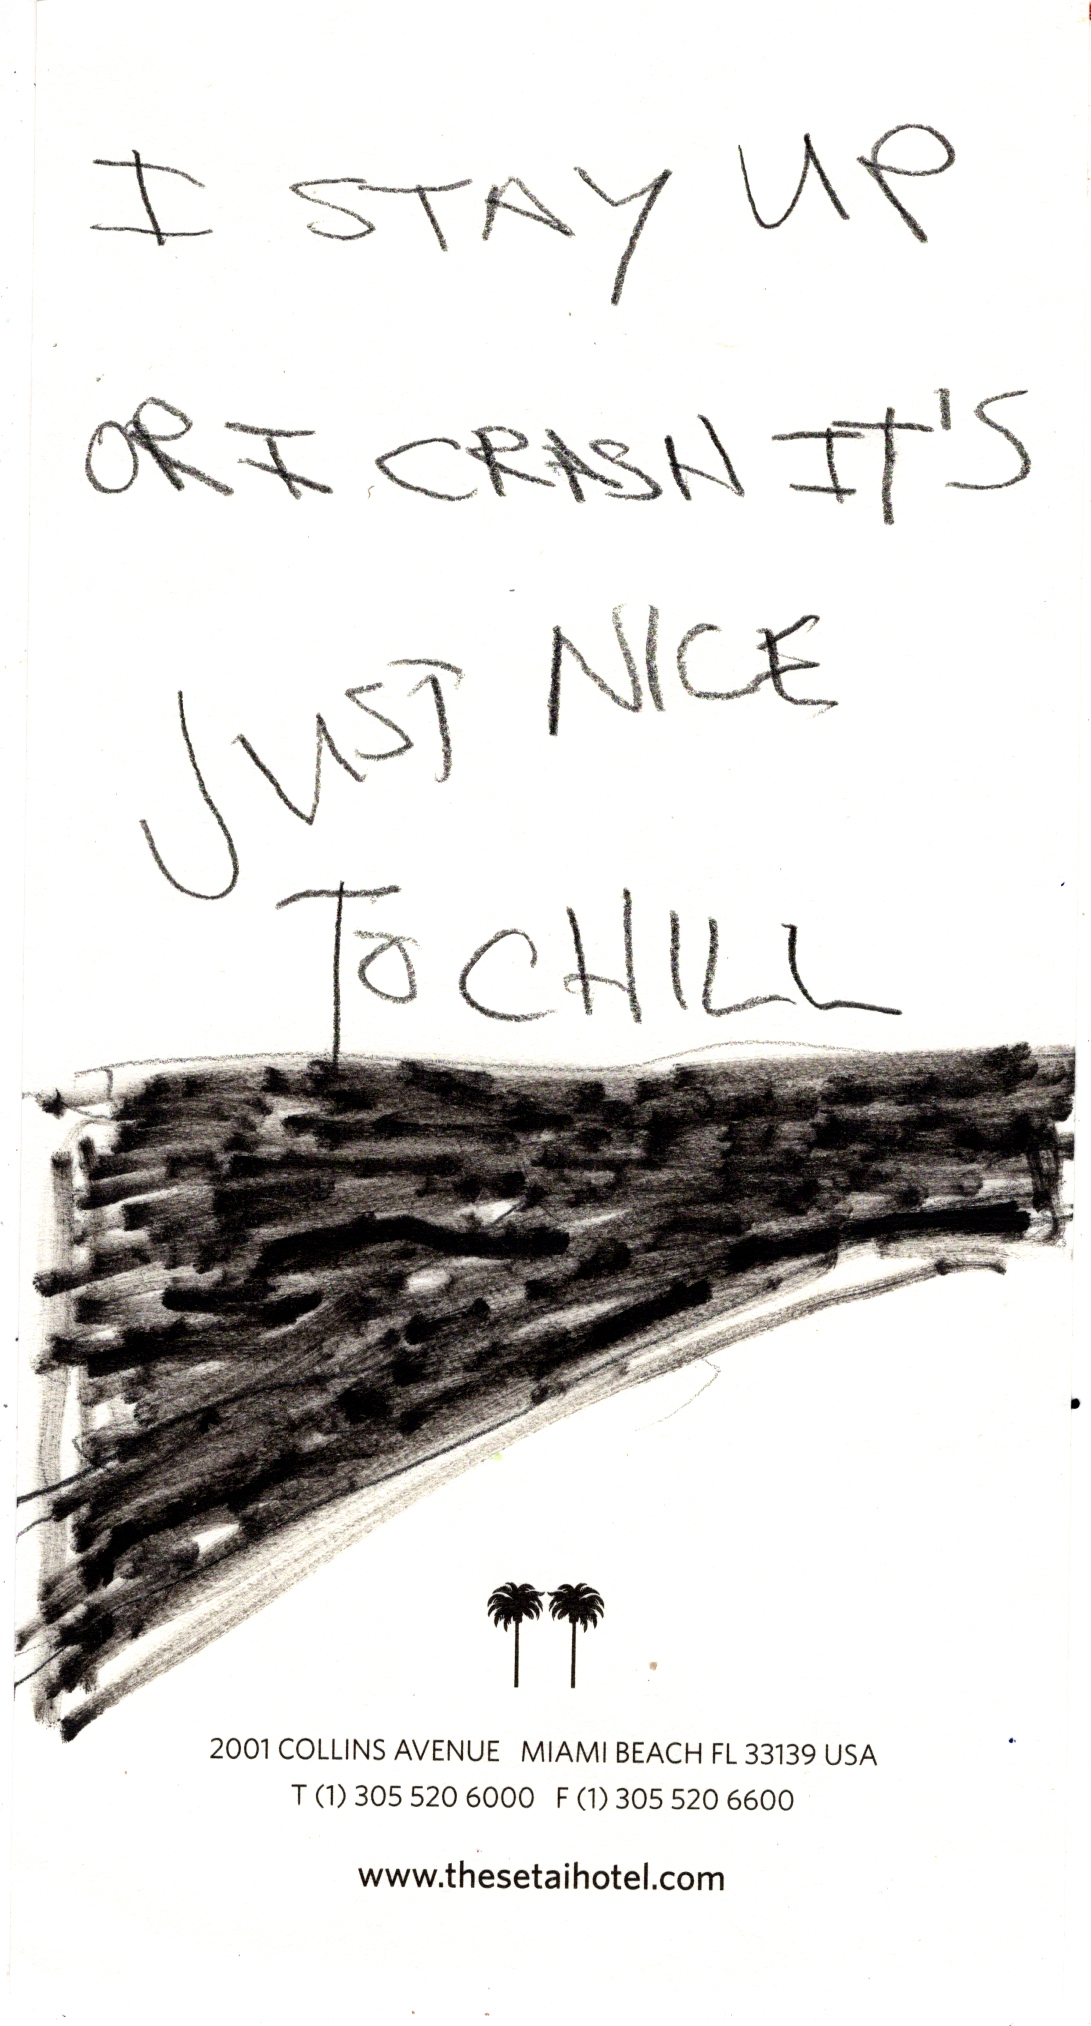 I STAY UP
OR I CRASH IT'S
JUST NICE
TO CHILL
2001 COLLINS AVENUE MIAMI BEACH FL 33139 USA
T (1) 305 520 6000 F (1) 305 520 6600
www.thesetaihotel.com